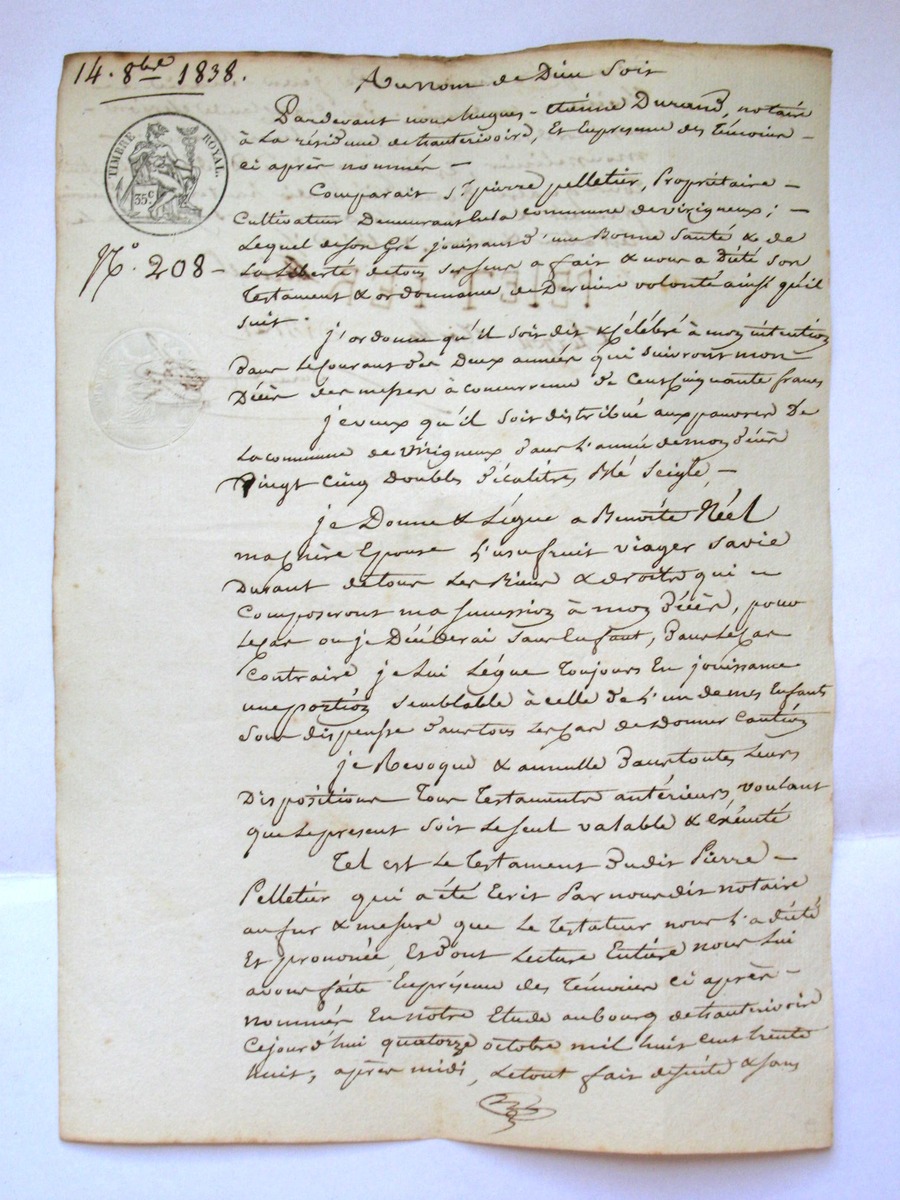 14. 8bre 1838.
Au nom de Dieu soit
TIMBRE ROYAL.
35 c
No. 208
Pardevant nous hugues-étienne Durand, notaire
à La résidence de Sauterivoire, Et En présence des Témoins
ci après nommés
Comparait Sr. pierre pelletier, Propriétaire
Cultivateur Demeurant En la commune de viriqneux;
Lequel de son Gré jouissant d'une Bonne Santé & de
La Liberté de tous ses sens a fait & nous a dicté son
Testament & ordonnance de Dernière volonté ainsi qu'il
suit.
j'ordonne qu'il soit dit & Célébré à mon intention
dans Le Courant des Deux années qui suivront mon
Décès des messes à concurrence de Cent Cinquante francs
je veux qu'il soit distribué aux pauvres De
La commune de Viriqneux dans L'année de mon décès
Vingt Cinq Doubles décalitres Blé Seigle,
je Donne & Lègue a Benoîte Réél
ma Chère Epouse L'usufruit viager sa vie
Durant de tous Les Biens & droits qui
Composeront ma succession à mon décès, pour
Le Cas où je Décéderai sans Enfant, dans Le Cas
Contraire je Lui Lègue Toujours En jouissance
une portion semblable à celle de L'un de mes Enfants
sous dispense dans tous Les Cas de Donner Caution
je Révoque & annulle dans toutes Leurs
Dispositions Tous Testaments antérieurs, voulant
que Le présent soit Le seul valable & Exécuté
Tel est Le Testament dudit Pierre
Pelletier qui a été Ecrit Par nous dit notaire
au fur & mesure que Le Testateur nous L'a dicté
Et prononcé, Et dont Lecture Entière nous Lui
avons faite En présence des Témoins ci après
nommés En notre Etude au bourg de Sauterivoire
Cejourd'hui quatorze octobre mil huit cent trente
huit, après midi, Le tout fait de suite & sans